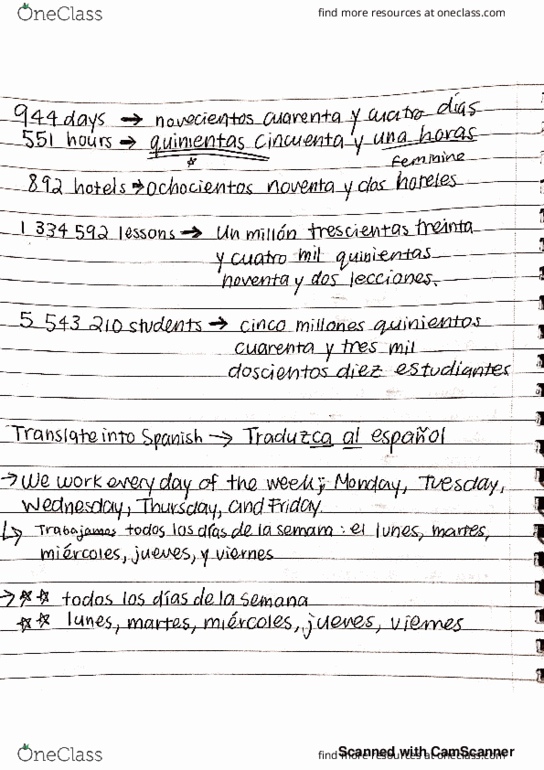 OneClass
find more resources at oneclass.com
944 days → novecientos cuarenta y cuatro días
551 hours → quinientas cincuenta y una horas
feminine
892 hotels → ochocientos noventa y dos hoteles
1 334 592 lessons → Un millón trescientas treinta
y cuatro mil quinientas
noventa y dos lecciones.
5 543 210 students → cinco millones quinientos
cuarenta y tres mil
doscientos diez estudiantes
Translate into Spanish → Traduzca al español
→ We work every day of the week; Monday, Tuesday,
Wednesday, Thursday, and Friday.
↳ Trabajamos todos los días de la semana: el lunes, martes,
miércoles, jueves, y viernes
→ ** todos los días de la semana
** lunes, martes, miércoles, jueves, viernes
OneClass
find more resources at oneclass.com
Scanned with CamScanner